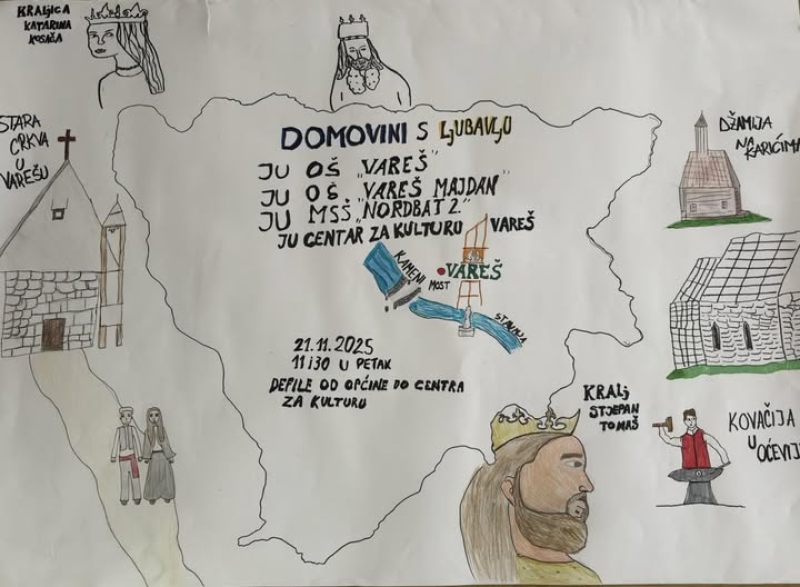 KRALJICA
KATARINA
KOSAČA
DOMOVINI S LJUBAVLJU
JU OŠ „VAREŠ"
JU OŠ „VAREŠ MAJDAN"
JU MSŠ „NORDBAT 2."
JU CENTAR ZA KULTURU VAREŠ
STARA
CRKVA
U
VAREŠU
DŽAMIJA
NA
KARIĆIMA
KAMENI
MOST
VAREŠ
STAVNJA
21.11.2025
11i30 U PETAK
DEFILE OD OPĆINE DO CENTRA
ZA KULTURU
KRALJ
STJEPAN
TOMAŠ
KOVAČIJA
U
OĆEVIJI